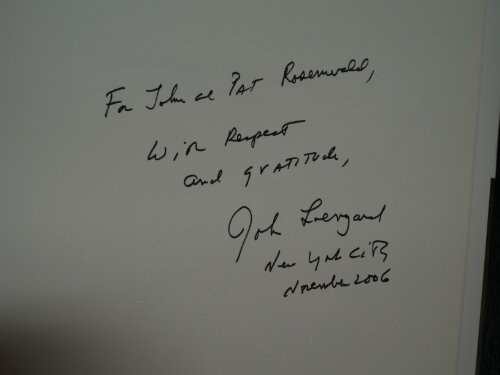 For John & Pat Rosenwald,
With Respect
and gratitude,
John Loengard
New York City
November 2006